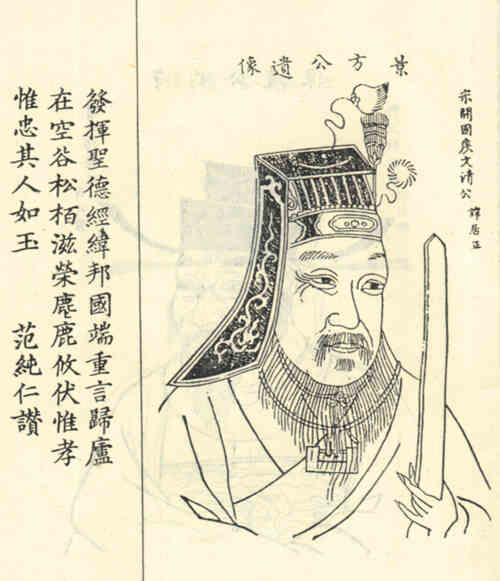 宋開國侯文清公 諱居正
景方公遺像
發揮聖德經緯邦國端重言歸廬
在空谷松栢滋榮麀鹿攸伏惟孝
惟忠其人如玉 范純仁讚